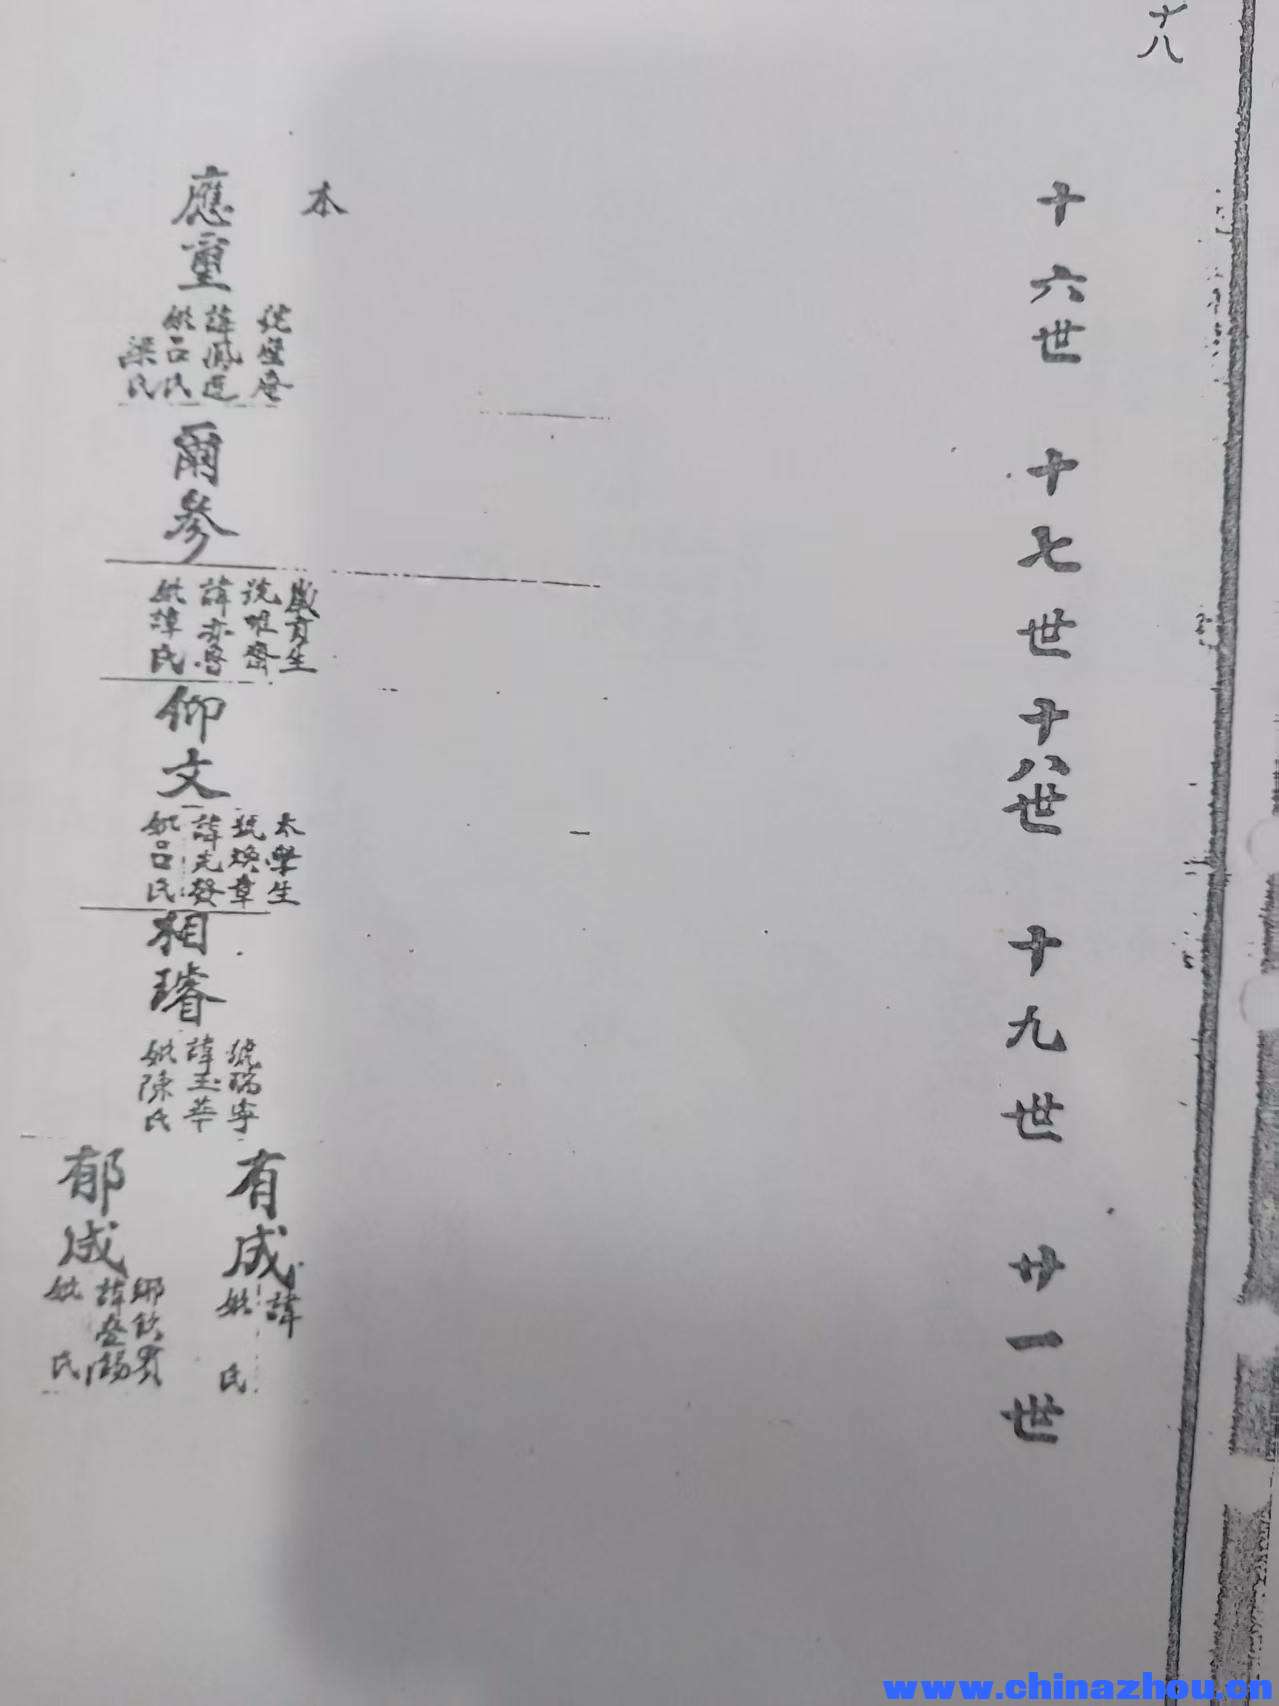 十八
十六世
十七世
十八世
十九世
廿一世
本
應重
諱鳳
妣呂氏
梁氏
爾參
歲育生
號唯齋
諱亦魯
妣譚氏
仰文
太學生
號煥章
諱光發
妣呂氏
相璿
號瑞宇
諱玉華
妣陳氏
有成
諱
妣 氏
郁成
鄉飲賓
諱登
妣 氏
www.chinazhou.cn